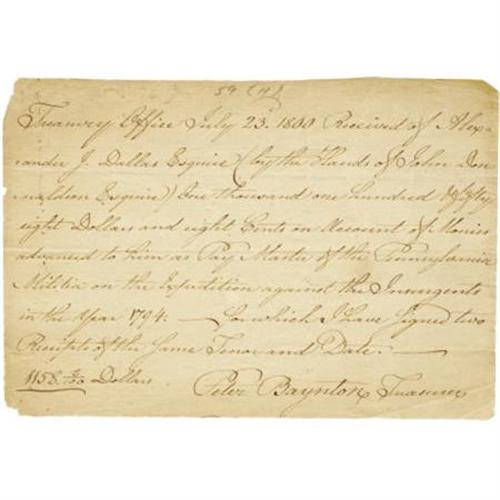 59 (11)
Treasury Office July 23. 1800 Received of Alex-
ander J. Dallas Esquire (by the Hands of John Don
naldson Esquire)) One thousand one hundred & fifty
eight Dollars and eight Cents in Account of Monies
advanced to him as Pay Master of the Pennsylvania
Militia on the Expedition against the Insurgents
in the Year 1794. — for which I have signed two
Receipts of the same Tenor and Date. —
1158. 8/100 Dollars
Peter Baynton Treasurer